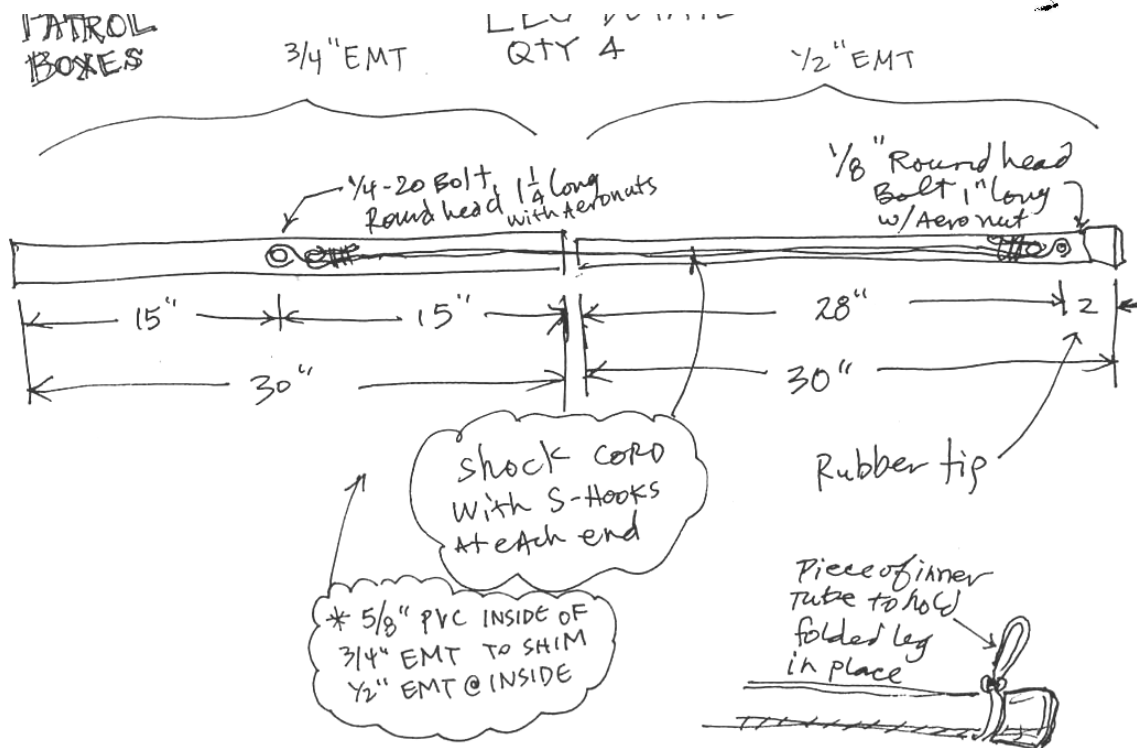 PATROL
BOXES
QTY 4
3/4" EMT
1/2" EMT
1/4-20 Bolt, 1 1/4 Long
Round head with Aeronuts
1/8" Round head
Bolt 1" long
w/ Aeronut
15"
15"
28"
2
30"
30"
Shock CORD
With S-Hooks
At eAch end
Rubber tip
* 5/8" PVC INSIDE OF
3/4" EMT TO SHIM
1/2" EMT @ INSIDE
Piece of inner
Tube to hold
folded leg
in place